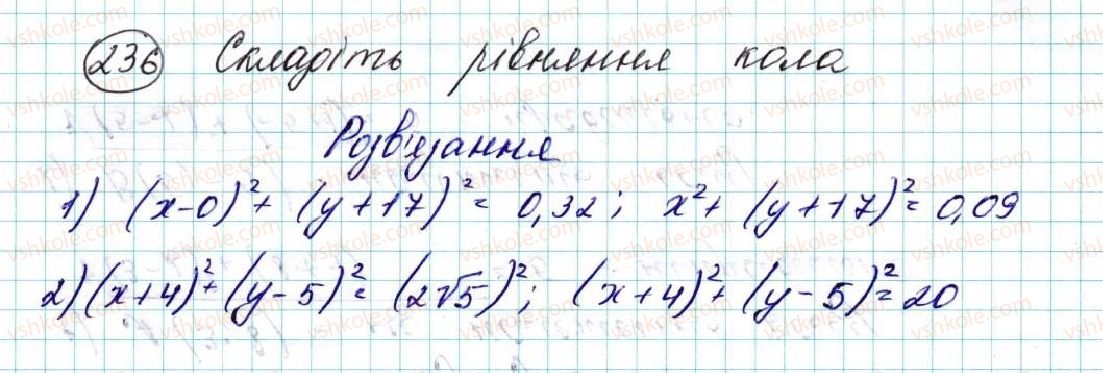 236 Складіть рівняння кола
Розв'язання
1) (x-0)² + (y+17)² = 0,32; x² + (y+17)² = 0,09
2) (x+4)² + (y-5)² = (2√5)²; (x+4)² + (y-5)² = 20